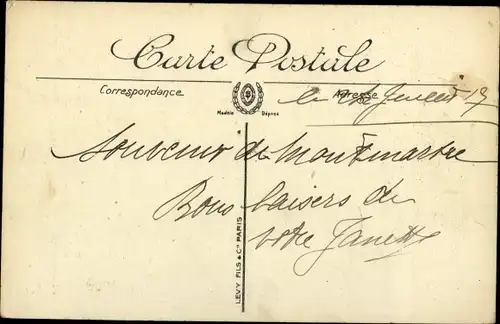 Carte Postale
Correspondance
Adresse
Modèle Déposé
le Juillet 19
Souvenir de Montmartre
Bons baisers de
votre Janette
LEVY FILS & Cie PARIS